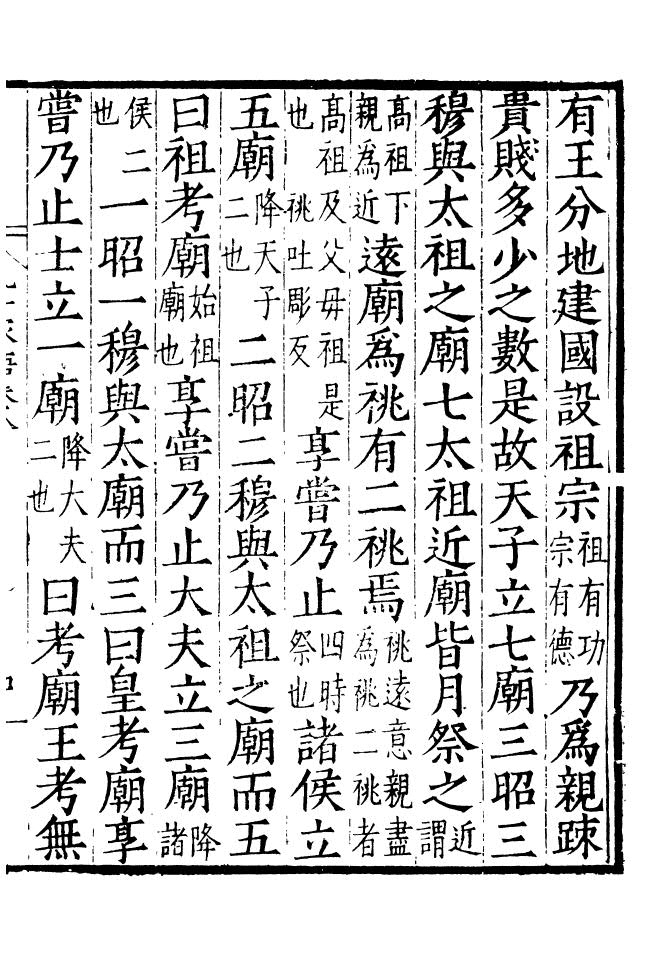 有王分地建國設祖宗祖有功宗有德乃爲親踈
貴賤多少之數是故天子立七廟三昭三
穆與太祖之廟七太祖近廟皆月祭之近謂
高祖下親爲近遠廟爲祧有二祧焉祧遠意親盡爲祧二祧者
高祖及父母祖是也祧吐彫反享嘗乃止四時祭也諸侯立
五廟降天子二也二昭二穆與太祖之廟而五
曰祖考廟始祖廟也享嘗乃止大夫立三廟降諸
侯二也一昭一穆與太廟而三曰皇考廟享
嘗乃止士立一廟降大夫二也曰考廟王考無